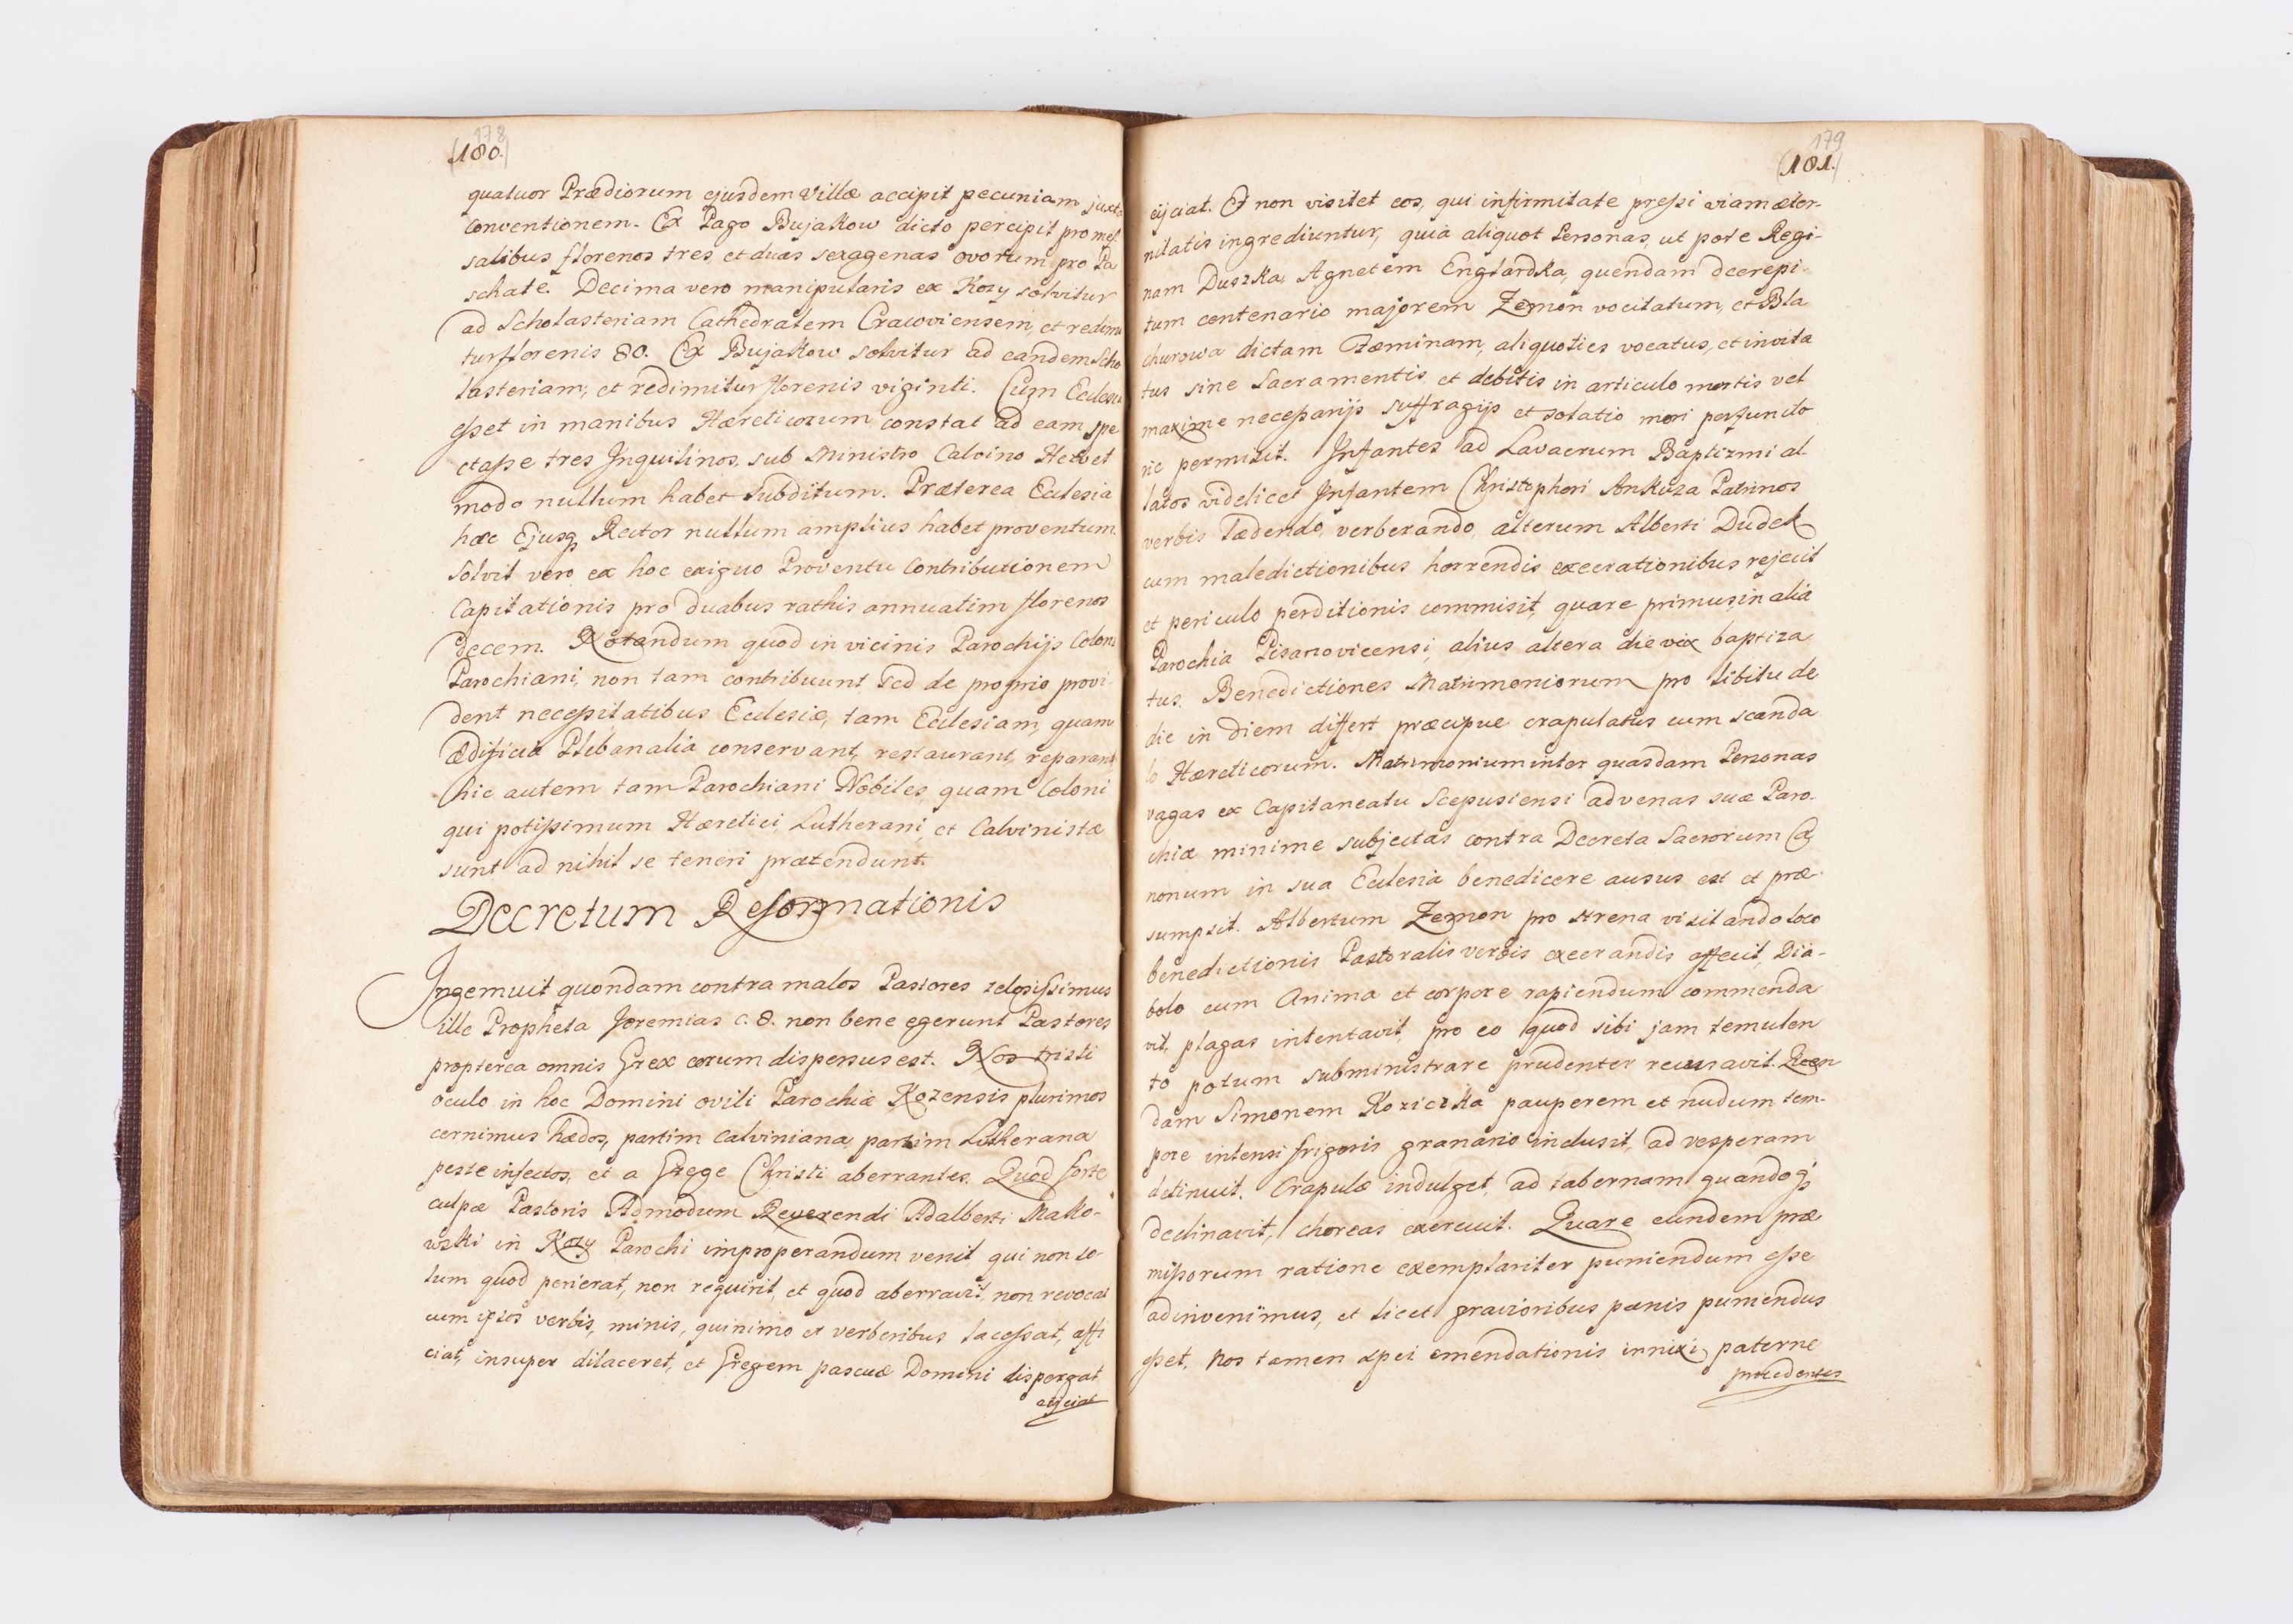 178
(180.)
quatuor Prædiorum ejusdem Villæ accipit pecuniam juxta
conventionem. Ex Pago Bujakow dicto percipit pro mes-
salibus florenos tres, et duas sexagenas ovorum pro Pa
schate. Decima vero manipularis ex Kozy solvitur
ad Scholasteriam Cathedralem Cracoviensem, et redimi
tur florenis 80. Ex Bujakow solvitur ad eandem Scho
lasteriam, et redimitur florenis viginti. Cum Ecclesia
esset in manibus Hæreticorum, constat ad eam spe
ctasse tres Inquilinos, sub Ministro Calvino Helvet
modo nullum habet subditum. Præterea Ecclesia
hæc Ejusq; Rector nullum amplius habet proventum.
Solvit vero ex hoc exiguo Proventu Contributionem
Capitationis pro duabus rathis annuatim florenos
decem. Notandum quod in vicinis Parochijs Coloni
Parochiani, non tam contribuunt sed de proprio provi-
dent necessitatibus Ecclesiæ, tam Ecclesiam, quam
Ædificia Plebanalia conservant, restaurant, reparant
hic autem tam Parochiani Nobiles, quam Coloni
qui potissimum Hæretici Lutherani, et Calvinistæ
sunt ad nihil se teneri prætendunt.
Decretum Reformationis
Ingemuit quondam contra malos Pastores zelosissimus
ille Propheta Jeremias c. 8. non bene egerunt Pastores
propterea omnis Grex eorum dispersus est. Nos tristi
oculo in hoc Domini ovili Parochiæ Kozensis plurimos
cernimus hædos, partim Calviniana, partim Lutherana
peste infectos, et a Grege Christi aberrantes. Quod forte
culpæ Pastoris Admodum Reverendi Adalberti Mako-
wski in Kozy Parochi improperandum venit, qui non so-
lum quod perierat, non requirit, et quod aberravit, non revocat
cum ipsos verbis, minis, quinimo et verberibus lacessat, affi
ciat, insuper dilaceret, et Gregem pascuæ Domini dispergat
eijciat
179
(181.)
eijciat. Et non visitet eos, qui infirmitate pressi viam æter-
nitatis ingrediuntur, quia aliquot Personas, ut pote Regi-
nam Duszka, Agnetem Englardka, quendam decrepi-
tum centenario majorem Zemon vocitatum, et Bla
churowa dictam Fæminam, aliquoties vocatus, et invita
tus sine Sacramentis et debitis in articulo mortis vel
maxime necessarijs suffragijs et solatio mori perfuncto
rie permisit. Infantes ad Lavacrum Baptizmi al
latos videlicet Infantem Christophori Ankuza Patrinos
verbis lædendo, verberando, alterum Alberti Dudek
cum maledictionibus horrendis execrationibus rejecit
et periculo perditionis commisit, quare primus in alia
Parochia Pisarzovicensi, alius altera die vix baptiza
tus. Benedictiones Matrimoniorum pro libitu de
die in diem differt præcipue crapulatus cum scanda
lo Hæreticorum. Matrimonium inter quasdam Personas
vagas ex Capitaneatu Scepusiensi advenas suæ Paro-
chiæ minime subjectas contra Decreta Sacrorum Ca
nonum in sua Ecclesia benedicere ausus est et præ-
sumpsit. Albertum Zemon pro strena visitando loco
benedictionis Pastoralis verbis execrandis affecit, Dia-
bolo cum Anima et corpore rapiendum commenda
vit, plagas intentavit, pro eo quod sibi jam temulen
to potum subministrare prudenter recusavit. Quen
dam Simonem Koziczka pauperem et nudum tem-
pore intensi frigoris granario inclusit, ad vesperam
detinuit. Crapulæ indulget, ad tabernam quandoq;
declinavit, choreas exercuit. Quare eundem præ
missorum ratione exemplariter puniendum esse
adinvenimus, et licet gravioribus pænis puniendus
esset, Nos tamen spei emendationis innixi, paterne
procedentes